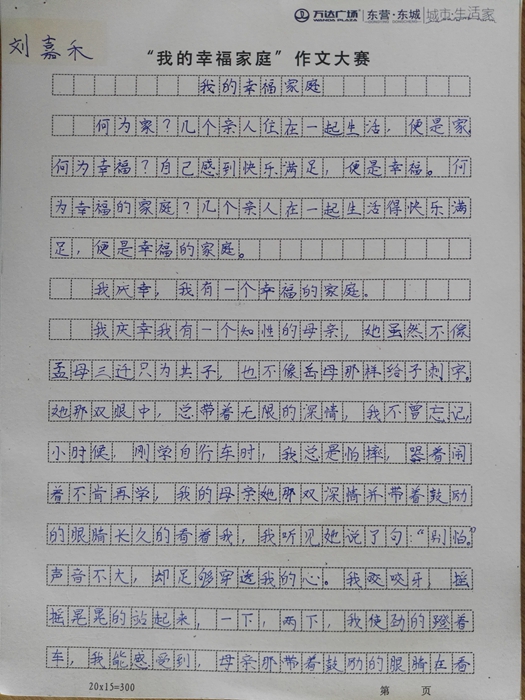 万达广场 WANDA PLAZA 东营·东城 城市·生活家
刘嘉禾
“我的幸福家庭”作文大赛
我的幸福家庭
何为家？几个亲人住在一起生活，便是家
何为幸福？自己感到快乐满足，便是幸福。何
为幸福的家庭？几个亲人在一起生活得快乐满
足，便是幸福的家庭。
我庆幸，我有一个幸福的家庭。
我庆幸我有一个知性的母亲，她虽然不像
孟母三迁只为其子，也不像岳母那样给子刺字。
她那双眼中，总带着无限的深情，我不曾忘记，
小时候，刚学自行车时，我总是怕摔，哭着闹
着不肯再学，我的母亲她那双深情并带着鼓励
的眼睛长久的看着我，我听见她说了句：“别怕。”
声音不大，却足够穿透我的心。我咬咬牙，摇
摇晃晃的站起来，一下，两下，我使劲的蹬着
车，我能感受到，母亲那带着鼓励的眼睛在看
20x15=300 第 页